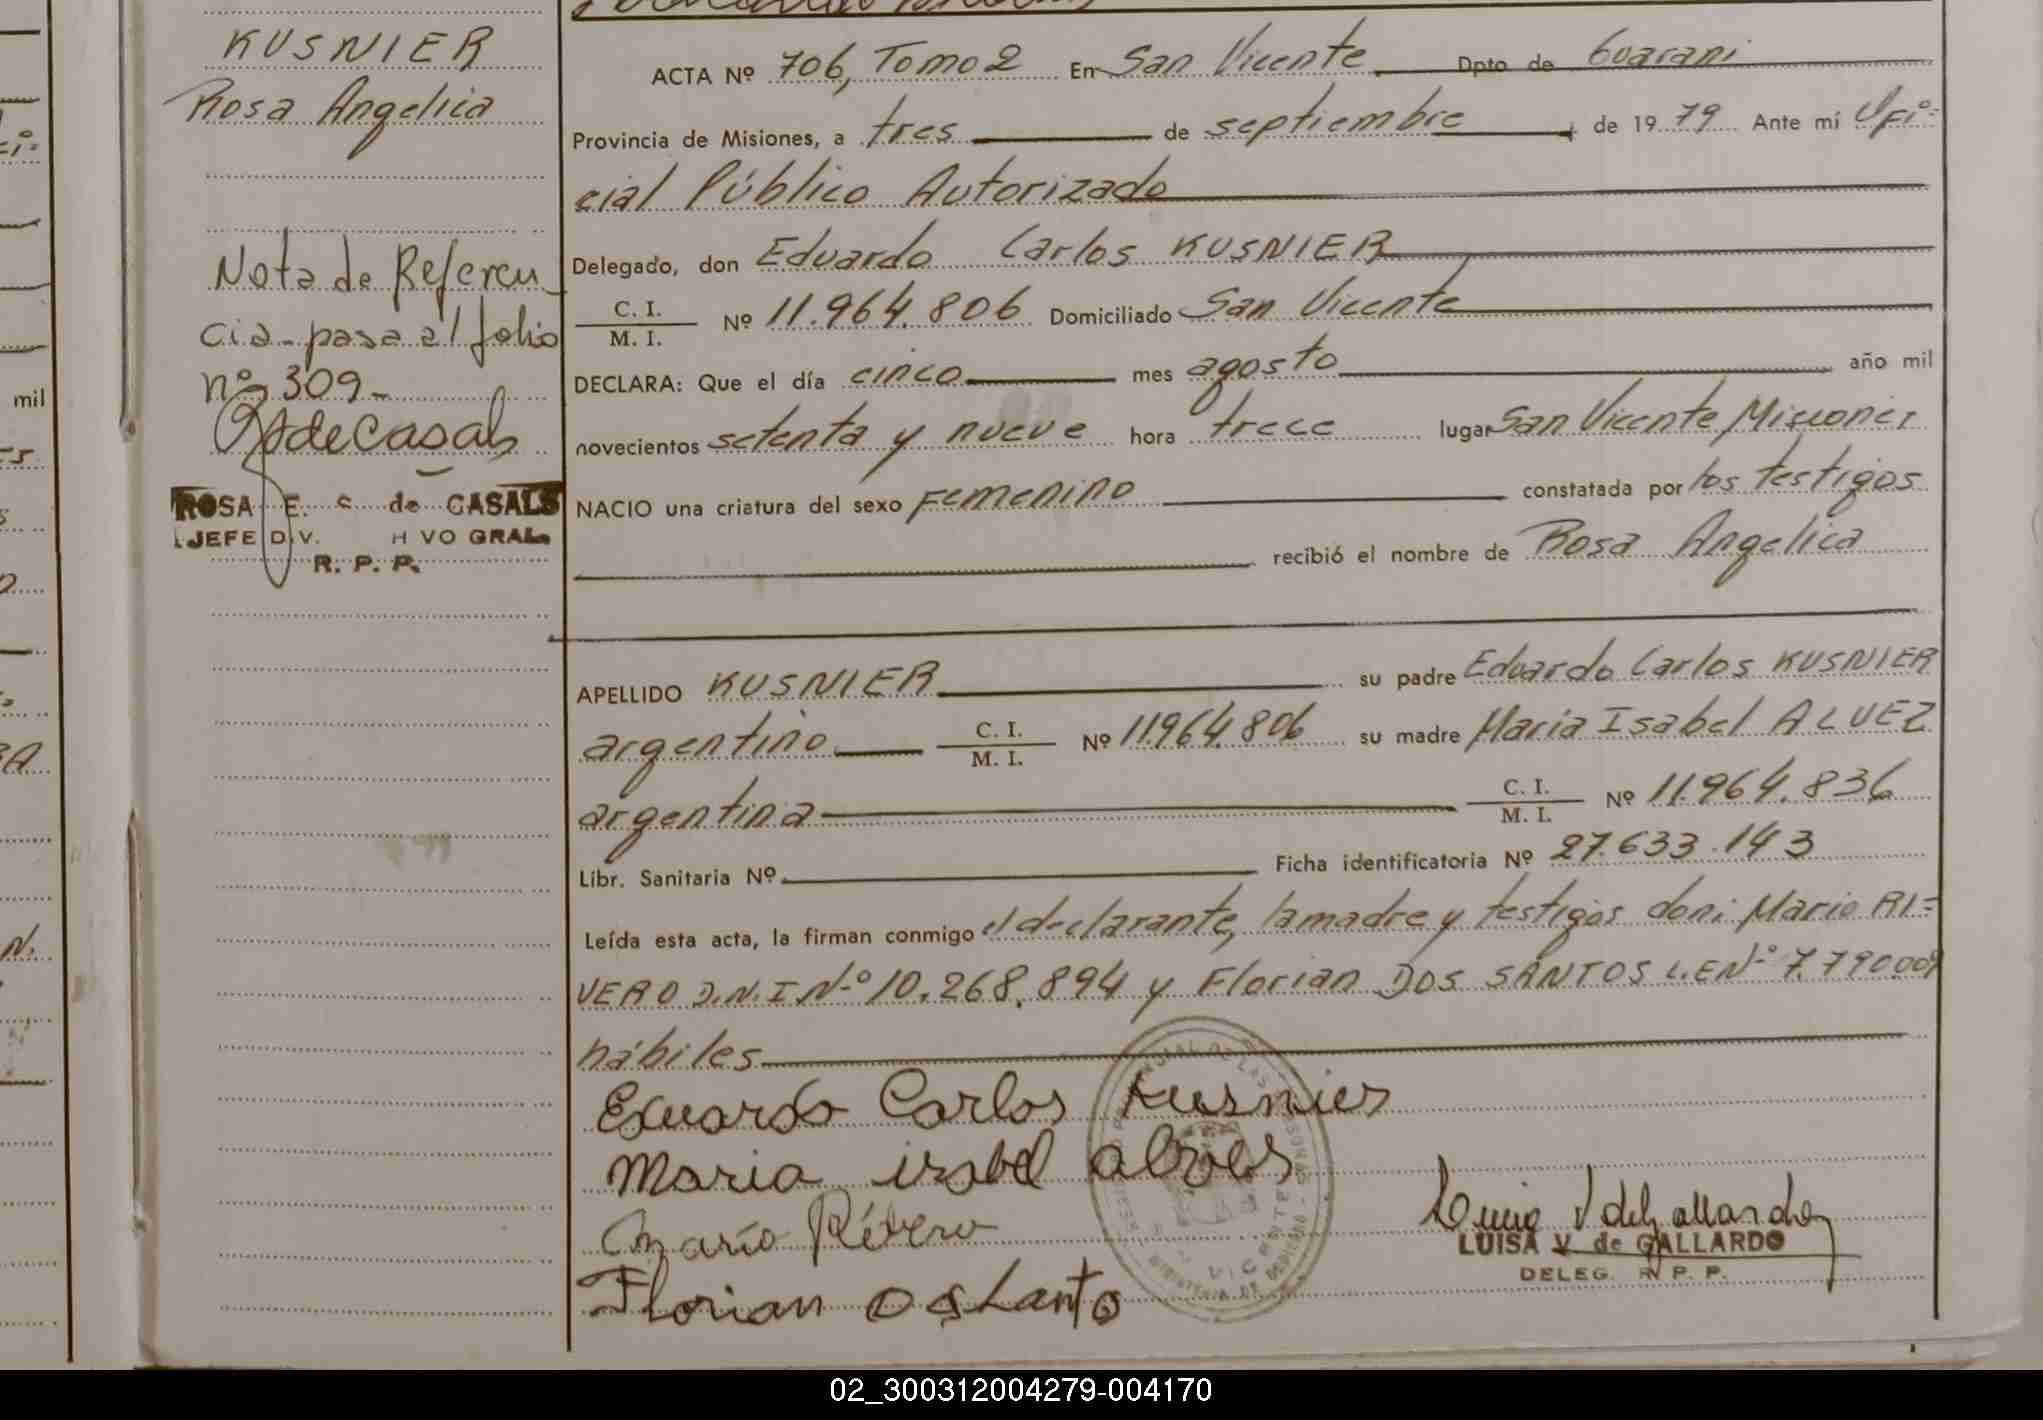 KUSNIER
Rosa Angelica
Nota de Referen_
cia - pasa al folio
nº 309_
RSdeCasals
ROSA E. S. de CASALS
JEFE DIV. H VO GRAL.
R. P. P.
ACTA Nº 706, Tomo 2 En San Vicente Dpto de Guarani
Provincia de Misiones, a tres de septiembre de 1979 Ante mí Ofi=
cial Público Autorizado
Delegado, don Eduardo Carlos KUSNIER
C. I.
M. I.
Nº 11.964.806 Domiciliado San Vicente
DECLARA: Que el día cinco mes agosto año mil
novecientos setenta y nueve hora trece lugar San Vicente, Misiones
NACIO una criatura del sexo Femenino constatada por los testigos
recibió el nombre de Rosa Angelica
APELLIDO KUSNIER su padre Eduardo Carlos KUSNIER
argentino C. I.
M. I.
Nº 11.964.806 su madre Maria Isabel ALVEZ
argentina C. I.
M. I.
Nº 11.964.836
Libr. Sanitaria Nº Ficha identificatoria Nº 27.633.143
Leída esta acta, la firman conmigo el declarante, la madre y testigos don: Mario RI=
VERO D.N.I Nº 10.268.894 y Florian DOS SANTOS L.E Nº 7.790.009
hábiles
Eduardo Carlos Kusnier
Maria izabel alves
Mario Rivero
Florian Os Santo
Luisa V de Gallardo
LUISA V. de GALLARDO
DELEG. R. P. P.
mil
02_300312004279-004170